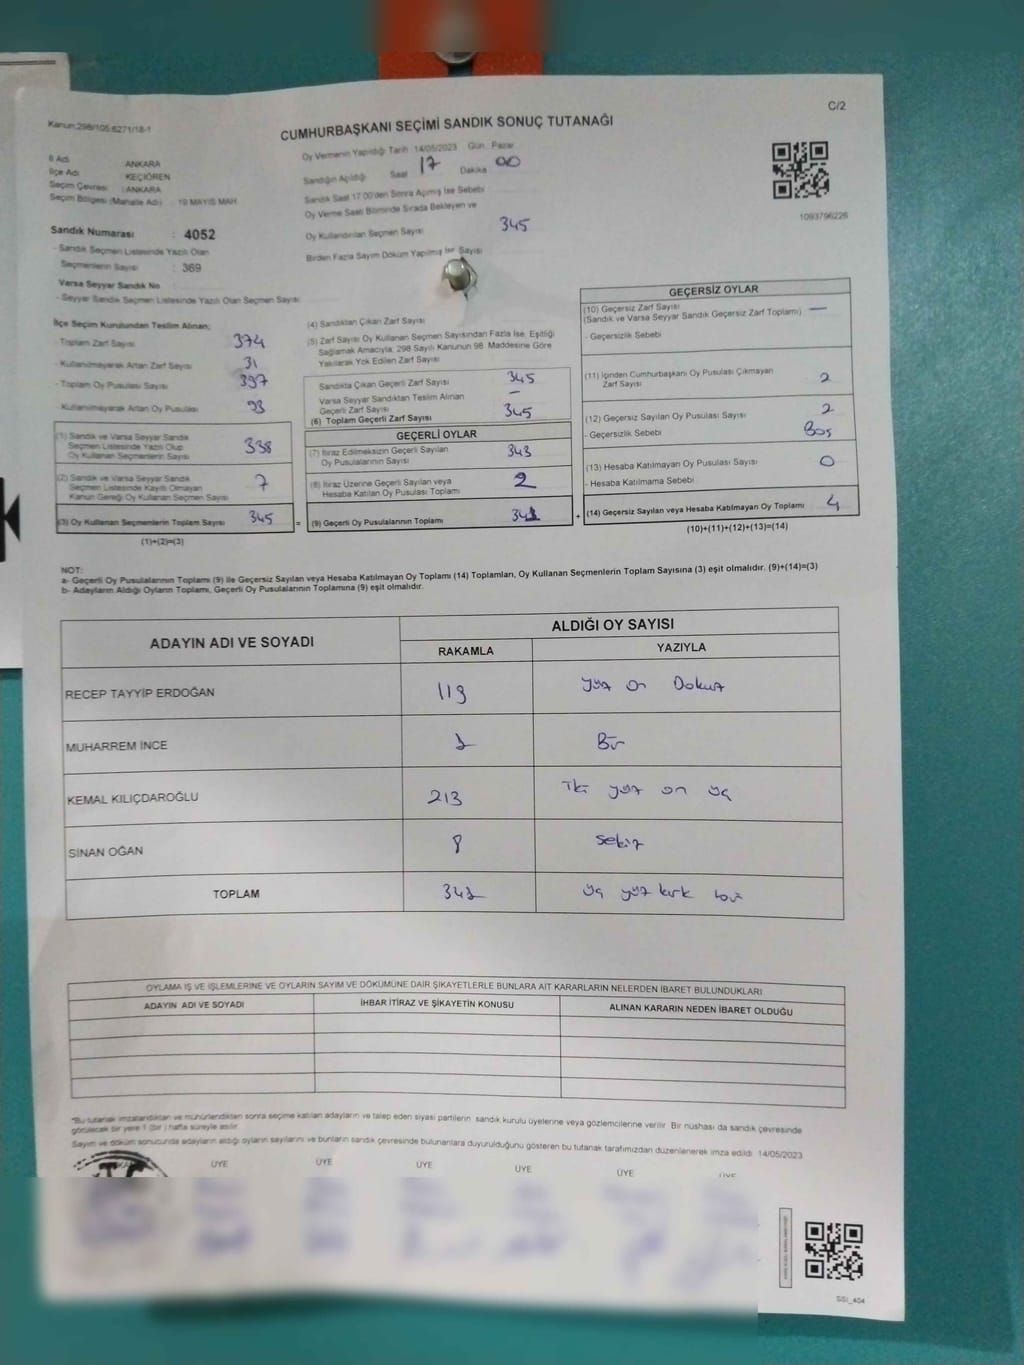 C/2
Kanun:298/105.6271/18-1
CUMHURBAŞKANI SEÇİMİ SANDIK SONUÇ TUTANAĞI
İl Adı ANKARA
İlçe Adı KEÇİÖREN
Seçim Çevresi : ANKARA
Seçim Bölgesi (Mahalle Adı) : 19 MAYIS MAH
Sandık Numarası : 4052
- Sandık Seçmen Listesinde Yazılı Olan
Seçmenlerin Sayısı : 369
Varsa Seyyar Sandık No
- Seyyar Sandık Seçmen Listesinde Yazılı Olan Seçmen Sayısı
Oy Vermenin Yapıldığı Tarih 14/05/2023 Gün : Pazar
Sandığın Açıldığı Saat 17 Dakika 00
Sandık Saat 17.00'den Sonra Açılmış İse Sebebi
Oy Verme Saati Bitiminde Sırada Bekleyen ve
Oy Kullandırılan Seçmen Sayısı 345
Birden Fazla Sayım Döküm Yapılmış İse Sayısı
1093796226
İlçe Seçim Kurulundan Teslim Alınan;
- Toplam Zarf Sayısı 374
- Kullanılmayarak Artan Zarf Sayısı 31
- Toplam Oy Pusulası Sayısı 397
- Kullanılmayarak Artan Oy Pusulası 93
(1) Sandık ve Varsa Seyyar Sandık
Seçmen Listesinde Yazılı Olup
Oy Kullanan Seçmenlerin Sayısı 338
(2) Sandık ve Varsa Seyyar Sandık
Seçmen Listesinde Kayıtlı Olmayan
Kanun Gereği Oy Kullanan Seçmen Sayısı 7
(3) Oy Kullanan Seçmenlerin Toplam Sayısı 345
(1)+(2)=(3)
(4) Sandıktan Çıkan Zarf Sayısı
(5) Zarf Sayısı Oy Kullanan Seçmen Sayısından Fazla İse, Eşitliği
Sağlamak Amacıyla, 298 Sayılı Kanunun 98. Maddesine Göre
Yakılarak Yok Edilen Zarf Sayısı
Sandıkta Çıkan Geçerli Zarf Sayısı 345
Varsa Seyyar Sandıktan Teslim Alınan
Geçerli Zarf Sayısı —
(6) Toplam Geçerli Zarf Sayısı 345
GEÇERLİ OYLAR
(7) İtiraz Edilmeksizin Geçerli Sayılan
Oy Pusulalarının Sayısı 343
(8) İtiraz Üzerine Geçerli Sayılan veya
Hesaba Katılan Oy Pusulası Toplamı 2
= (9) Geçerli Oy Pusulalarının Toplamı 341
GEÇERSİZ OYLAR
(10) Geçersiz Zarf Sayısı
(Sandık ve Varsa Seyyar Sandık Geçersiz Zarf Toplamı) —
- Geçersizlik Sebebi
(11) İçinden Cumhurbaşkanı Oy Pusulası Çıkmayan
Zarf Sayısı 2
(12) Geçersiz Sayılan Oy Pusulası Sayısı 2
- Geçersizlik Sebebi Boş
(13) Hesaba Katılmayan Oy Pusulası Sayısı 0
- Hesaba Katılmama Sebebi
+ (14) Geçersiz Sayılan veya Hesaba Katılmayan Oy Toplamı 4
(10)+(11)+(12)+(13)=(14)
NOT:
a- Geçerli Oy Pusulalarının Toplamı (9) ile Geçersiz Sayılan veya Hesaba Katılmayan Oy Toplamı (14) Toplamları, Oy Kullanan Seçmenlerin Toplam Sayısına (3) eşit olmalıdır. (9)+(14)=(3)
b- Adayların Aldığı Oyların Toplamı, Geçerli Oy Pusulalarının Toplamına (9) eşit olmalıdır.
ADAYIN ADI VE SOYADI ALDIĞI OY SAYISI
RAKAMLA YAZIYLA
RECEP TAYYİP ERDOĞAN 119 Yüz on Dokuz
MUHARREM İNCE 1 Bir
KEMAL KILIÇDAROĞLU 213 İki yüz on üç
SİNAN OĞAN 8 sekiz
TOPLAM 341 üç yüz kırk
OYLAMA İŞ VE İŞLEMLERİNE VE OYLARIN SAYIM VE DÖKÜMÜNE DAİR ŞİKAYETLERLE BUNLARA AİT KARARLARIN NELERDEN İBARET BULUNDUKLARI
ADAYIN ADI VE SOYADI İHBAR İTİRAZ VE ŞİKAYETİN KONUSU ALINAN KARARIN NEDEN İBARET OLDUĞU
*Bu tutanak imzalandıktan ve mühürlendikten sonra seçime katılan adayların ve talep eden siyasi partilerin sandık kurulu üyelerine veya gözlemcilerine verilir. Bir nüshası da sandık çevresinde
görülecek bir yere 1 (bir) hafta süreyle asılır.
Sayım ve döküm sonucunda adayların aldığı oyların sayılarını ve bunların sandık çevresinde bulunanlara duyurulduğunu gösteren bu tutanak tarafımızdan düzenlenerek imza edildi. 14/05/2023
T.C. ÜYE ÜYE ÜYE ÜYE ÜYE ÜYE
SSI_454